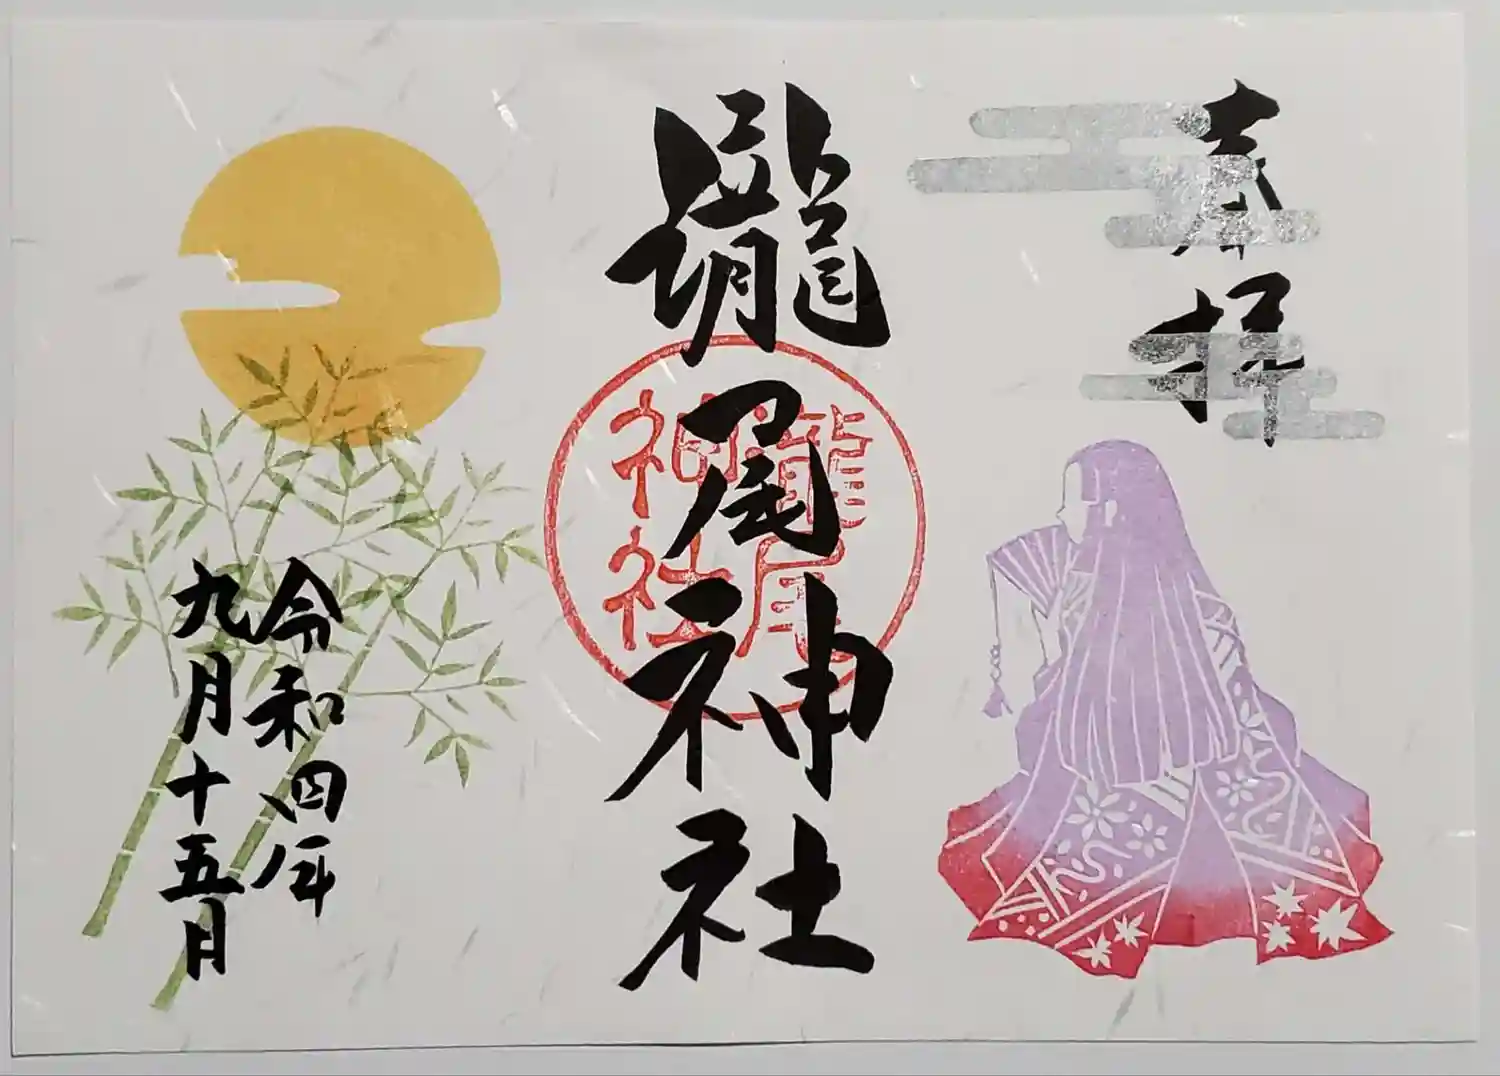 奉拝
龍尾神社
龍尾
神社
令和四年
九月十五日